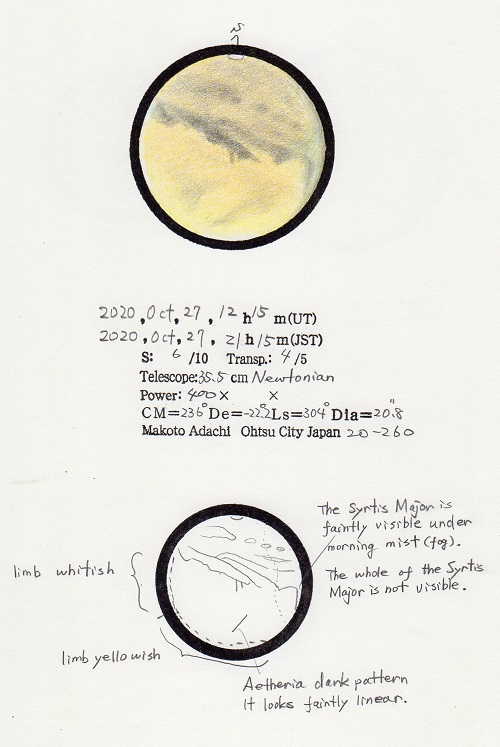 S
2020, Oct, 27, 12 h 15 m (UT)
2020, Oct, 27, 21 h 15 m (JST)
S: 6 /10 Transp.: 4 /5
Telescope: 35.5 cm Newtonian
Power: 400 × ×
CM=236° De=-22.2 Ls=304° Dia=20.8"
Makoto Adachi Ohtsu City Japan 20-260
The Syrtis Major is
faintly visible under
morning mist (fog).
The whole of the Syrtis
Major is not visible.
limb whitish
limb yellowish
Aetheria dark pattern
It looks faintly linear.